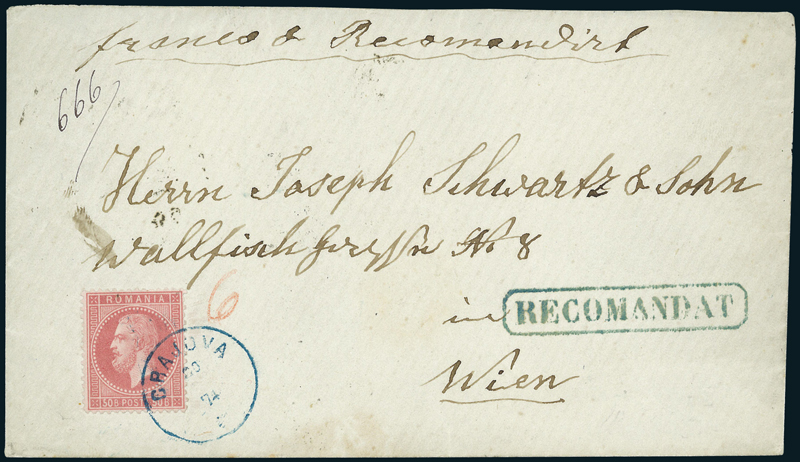 franco & Recomandirt
666
Herrn Joseph Schwartz & Sohn
Wallfischgasse No 8
6
in
RECOMANDAT
Wien
ROMANIA
50 B POST 50 B
CRAJOVA
74